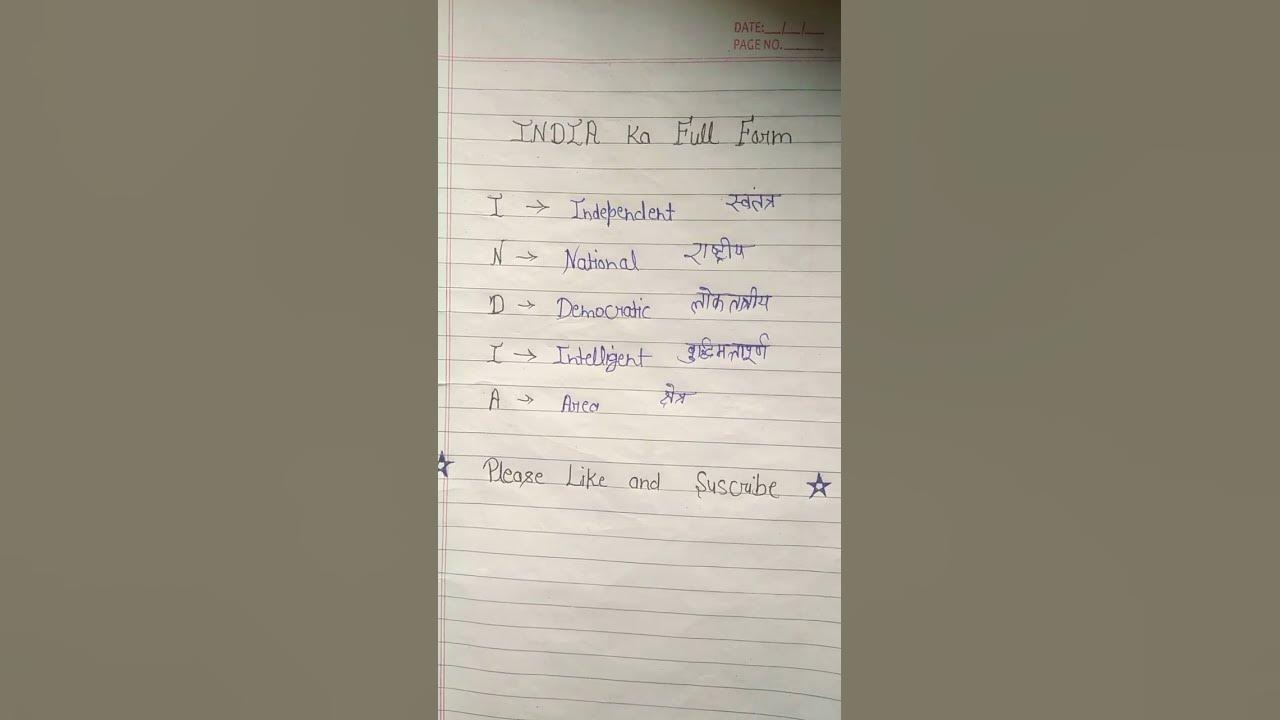 DATE:__/__/__
PAGE NO.______
INDIA Ka Full Form
I → Independent स्वतंत्र
N → National राष्ट्रीय
D → Democratic लोकतन्त्रीय
I → Intelligent बुद्धिमत्तापूर्ण
A → Area क्षेत्र
☆ Please Like and Suscribe ☆